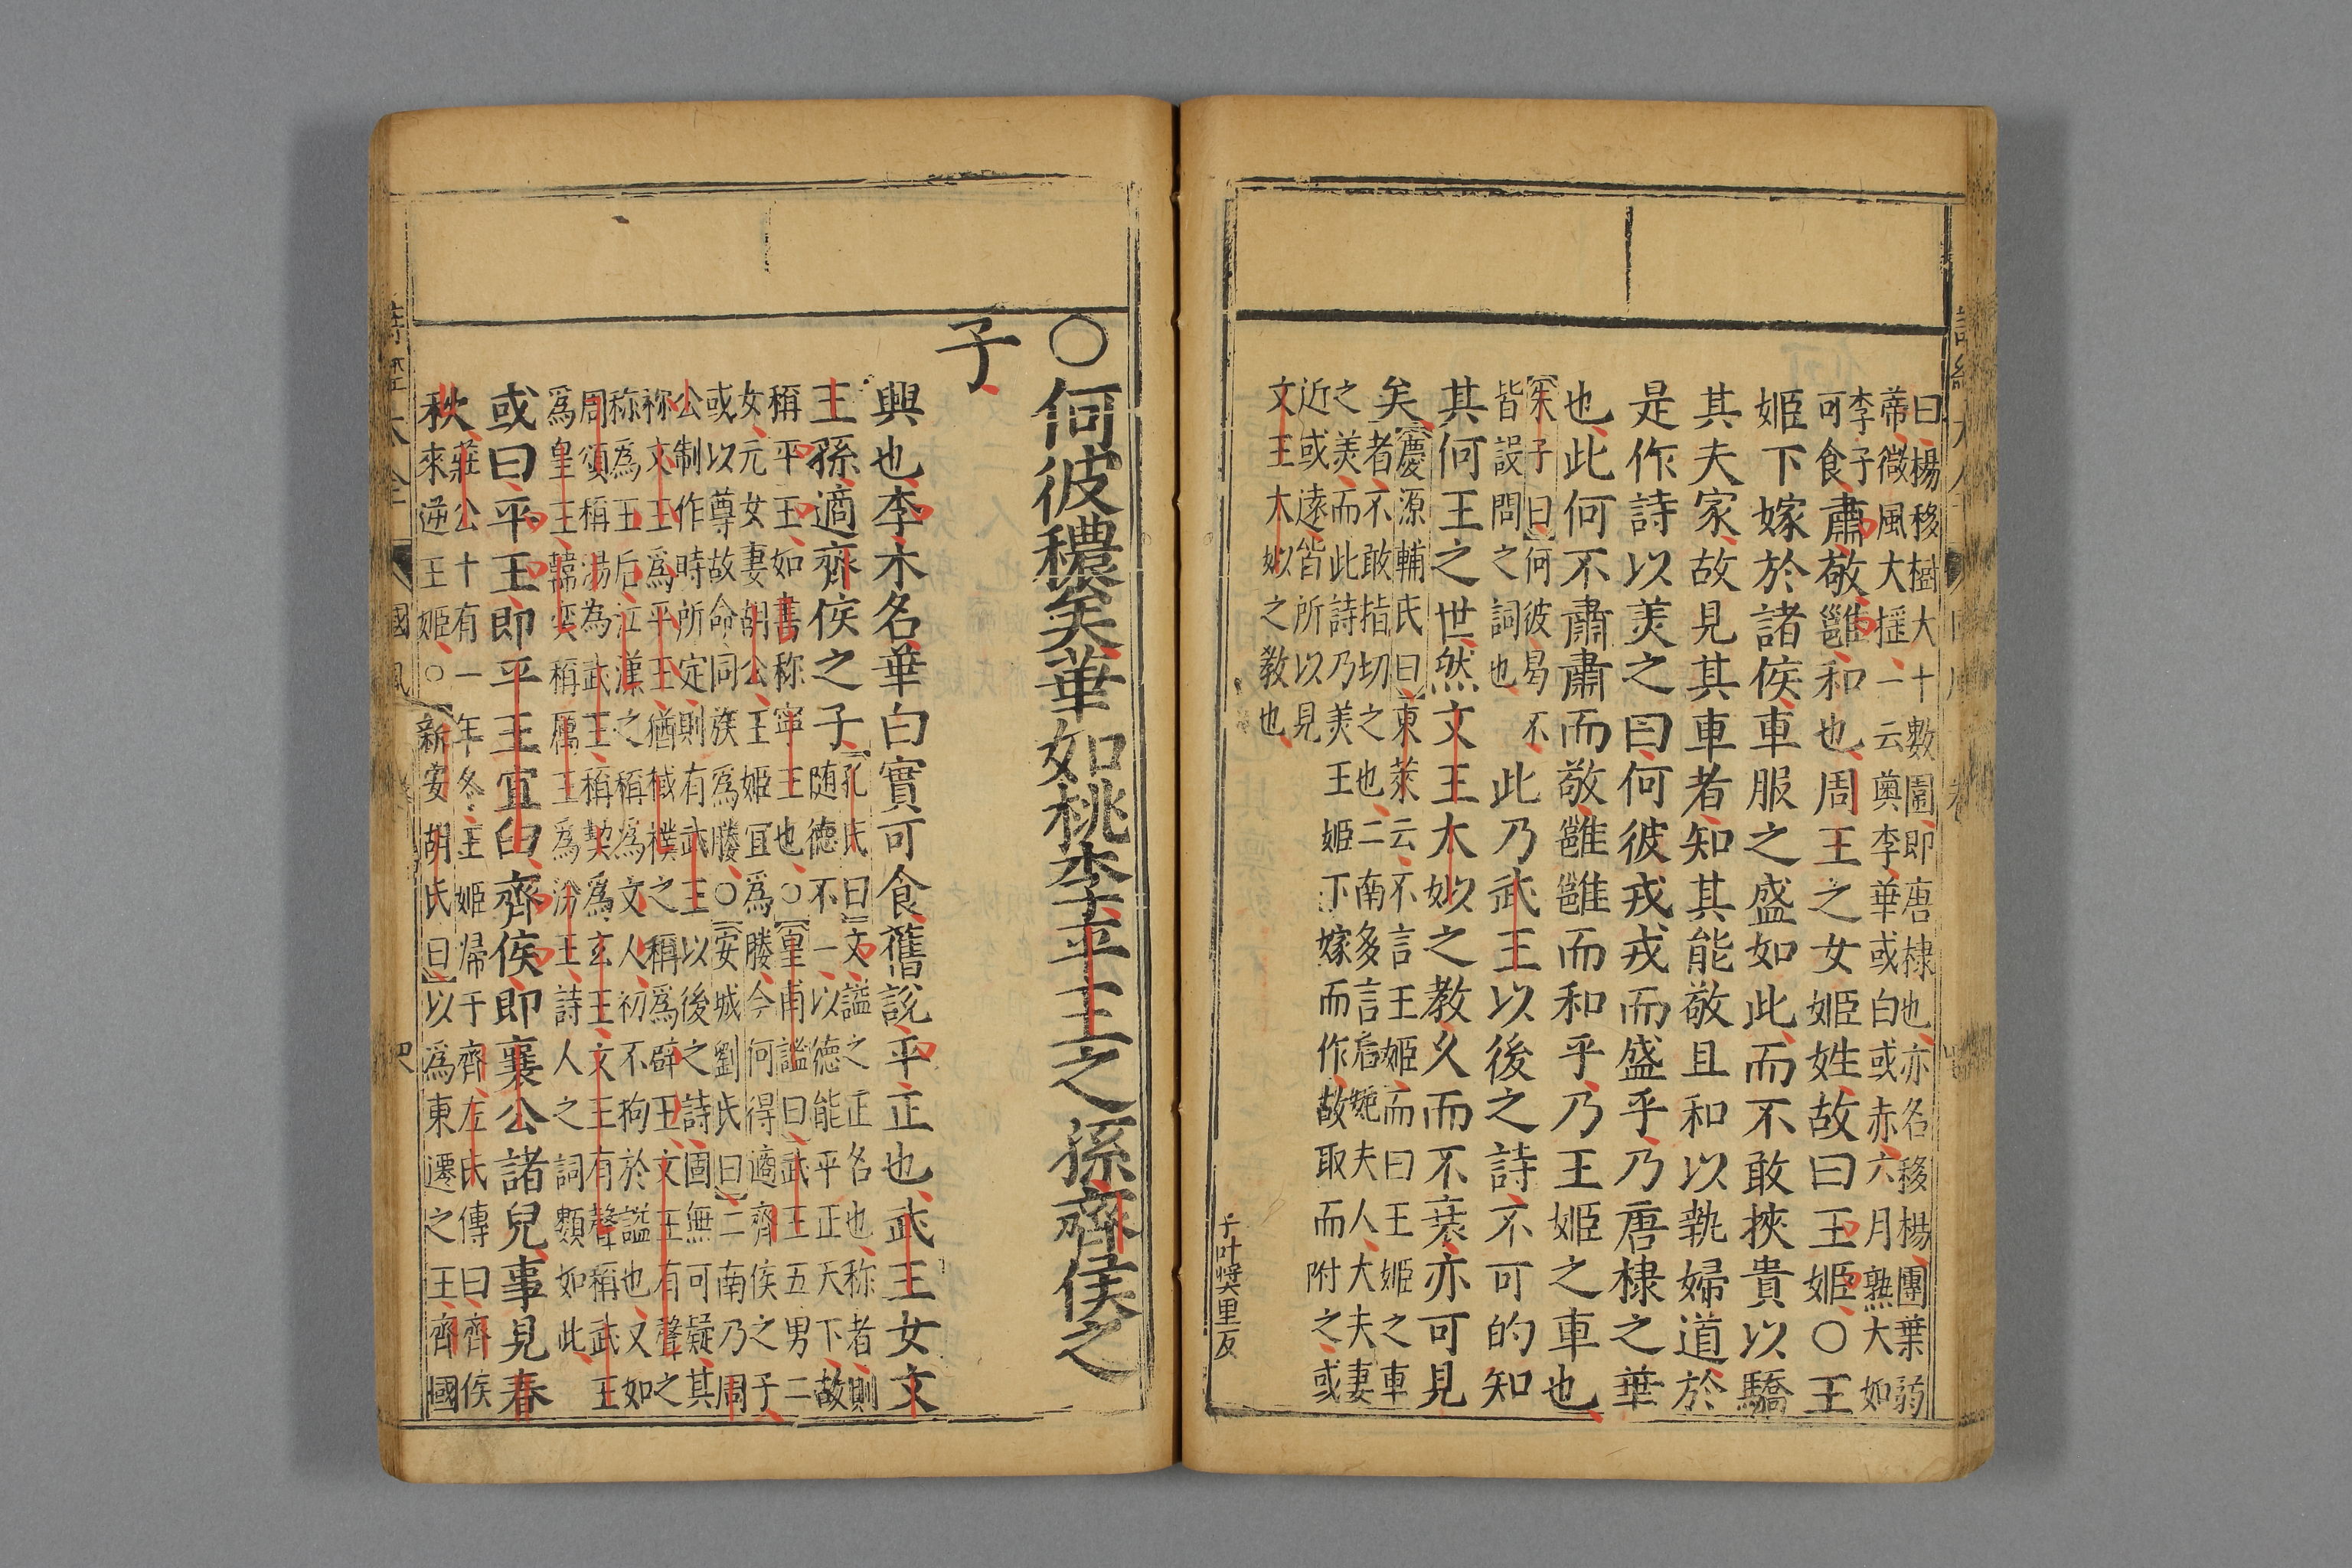 曰楊移樹大十數圍即唐棣也亦名移楊團葉弱
蒂微風大摇一云奧李華或白或赤六月熟大如
李子可食肅敬雝和也周王之女姬姓故曰王姬〇王
姬下嫁於諸侯車服之盛如此而不敢挾貴以驕
其夫家故見其車者知其能敬且和以執婦道於
是作詩以羙之曰何彼戎戎而盛乎乃唐棣之華
也此何不肅肅而敬雝雝而和乎乃王姬之車也
朱子曰何彼曷不
皆設問之詞也
此乃武王以後之詩不可的知
其何王之世然文王太姒之教久而不衰亦可見
矣
慶源輔氏曰東萊云不言王姬而曰王姬之車
者不敢指切之也二南多言后妃夫人大夫妻
之羙而此詩乃羙王姬下嫁而作故取而附之或
近或遠皆所以見
文王太姒之教也
子叶獎里反
〇何彼穠矣華如桃李平王之孫齊侯之
子
興也李木名華白實可食舊說平正也武王女文
王孫適齊侯之子
孔氏曰文謚之正名也称者則
随德不一以德能平正天下故
稱平王如書称寧王也〇皇甫謐曰武王五男二
女元女妻胡公王姬宜為媵今何得適齊侯之子
或以尊故命同族為媵〇安城劉氏曰二南乃周
公制作時所定則有武王以後之詩固無可疑其
称文王為平王猶棫樸之稱為辟王文王有聲之
称為王后江漢之稱為文人初不拘於謚也又如
周頌稱湯為武王稱契為玄王文王有聲稱武王
為皇王韓奕稱厲王為汾王詩人之詞類如此
或曰平王即平王宜臼齊侯即襄公諸兒事見春
秋
莊公十有一年冬王姬帰于齊左氏傳曰齊侯
來逆王姬〇新安胡氏曰以為東遷之王齊國
詩經大全 國風